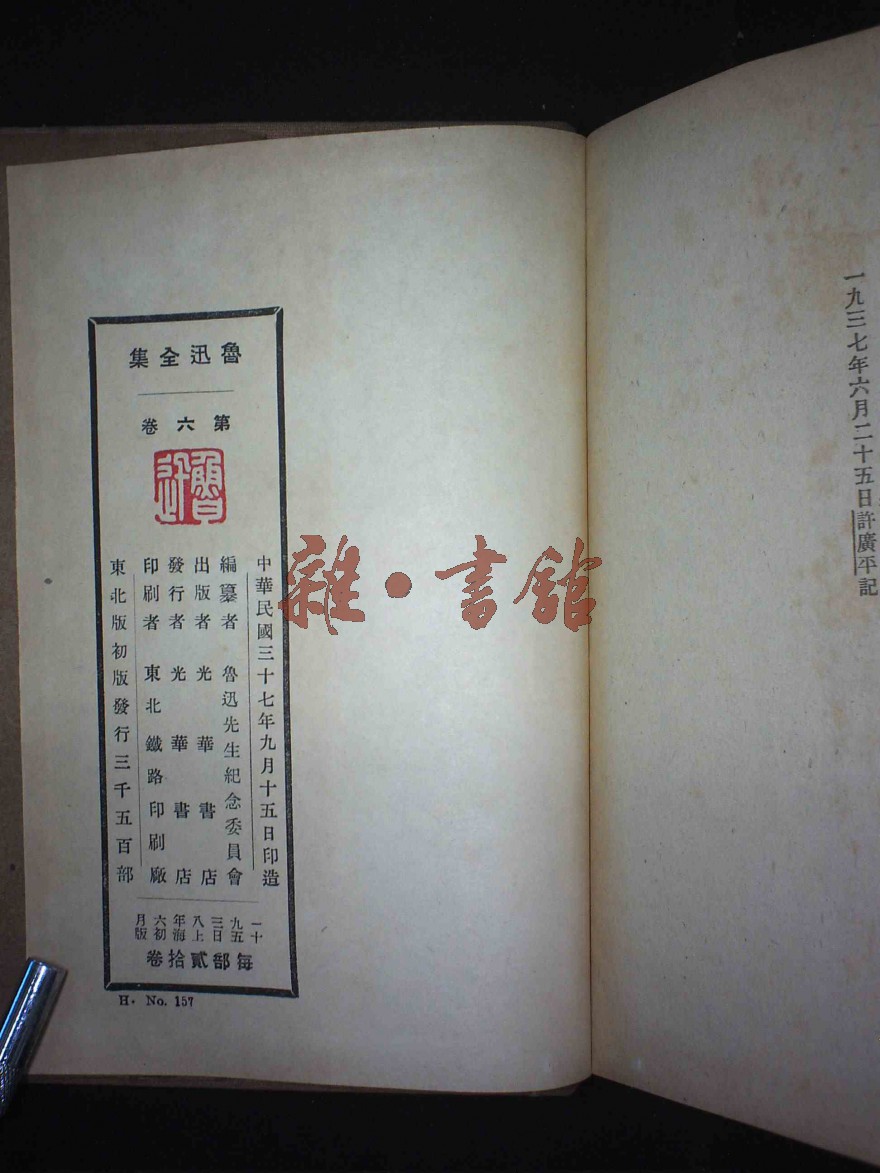 一九三七年六月二十五日許廣平記
魯迅全集
第六卷
魯迅
中華民國三十七年九月十五日印造
編纂者 魯迅先生紀念委員會
出版者 光華書店
發行者 光華書店
印刷者 東北鐵路印刷廠
東北版初版發行三千五百部
一九三八年六月
十五日上海初版
每部貳拾卷
H. No. 157
雜·書館